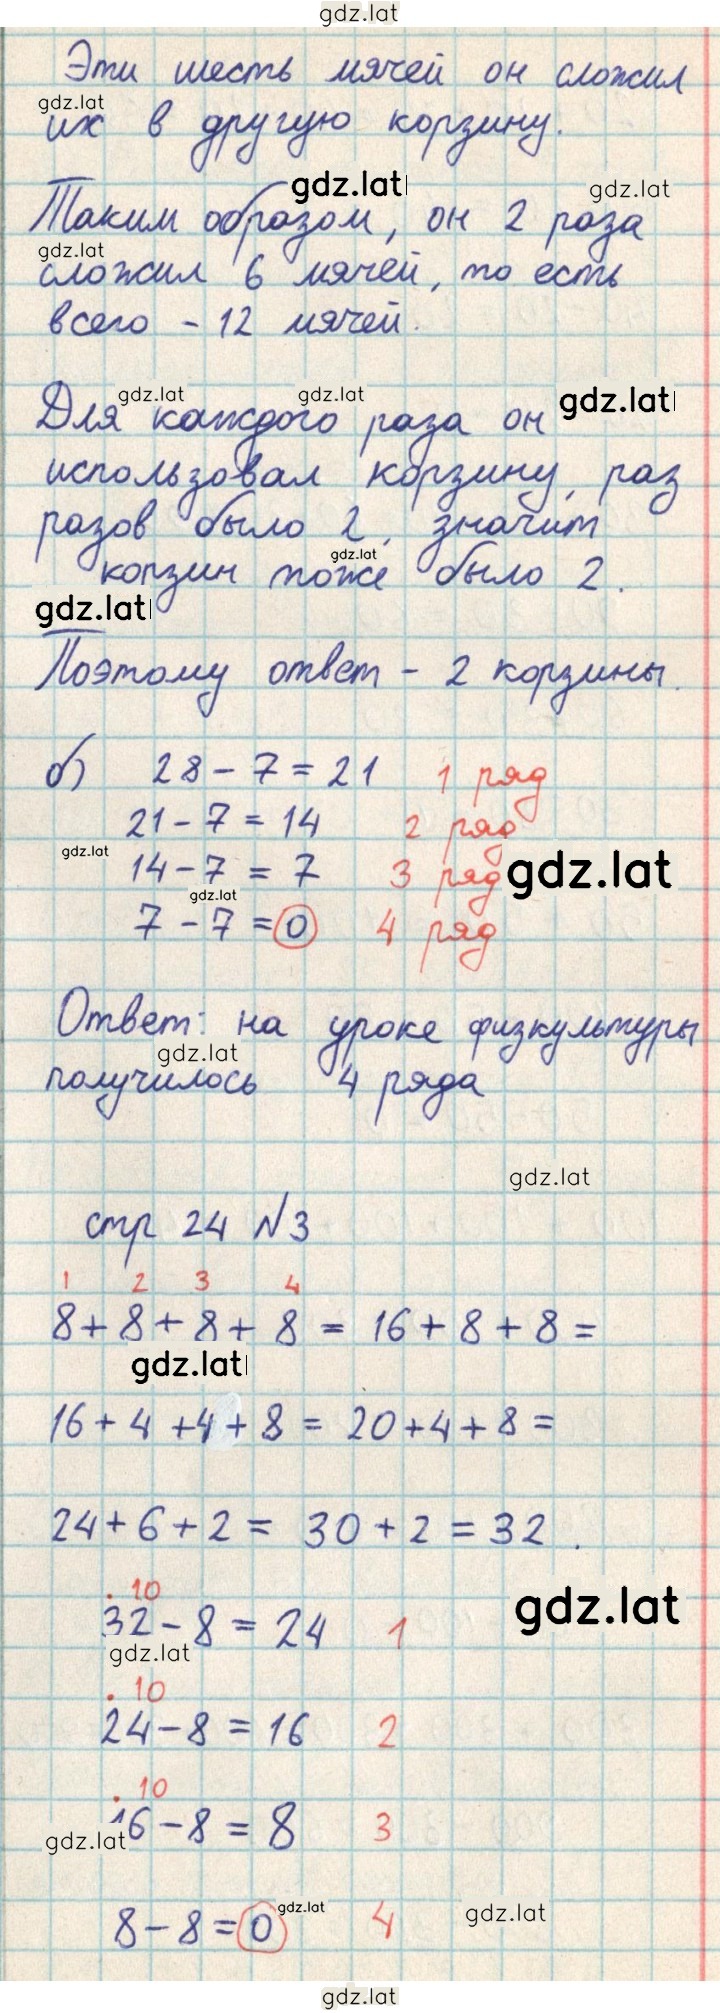 gdz.lat
Эти шесть мячей он сложил
gdz.lat
их в другую корзину.
gdz.lat gdz.lat
Таким образом, он 2 раза
gdz.lat
сложил 6 мячей, то есть
всего - 12 мячей.
gdz.lat gdz.lat gdz.lat
Для каждого раза он
использовал корзину, раз
разов было 2, значит
gdz.lat
корзин тоже было 2.
gdz.lat
Поэтому ответ - 2 корзины.
б) 28 - 7 = 21 1 ряд
21 - 7 = 14 2 ряд
gdz.lat
14 - 7 = 7 3 ряд gdz.lat
gdz.lat
7 - 7 = 0 4 ряд
Ответ: на уроке физкультуры
gdz.lat
получилось 4 ряда
gdz.lat
стр 24 №3
1 2 3 4
8 + 8 + 8 + 8 = 16 + 8 + 8 =
gdz.lat
16 + 4 + 4 + 8 = 20 + 4 + 8 =
24 + 6 + 2 = 30 + 2 = 32.
. 10 gdz.lat
32 - 8 = 24 1
gdz.lat
. 10
24 - 8 = 16 2
. 10
16 - 8 = 8 3
gdz.lat
8 - 8 = 0 gdz.lat 4 gdz.lat
gdz.lat